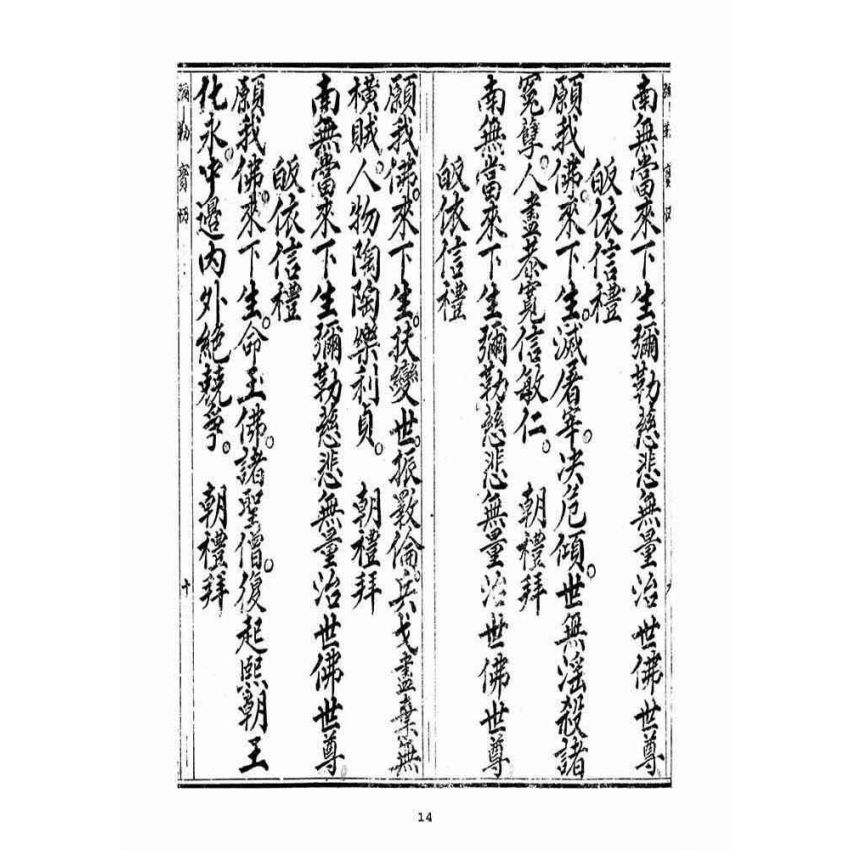 南無當來下生彌勒慈悲無量治世佛世尊
皈依信禮
願我佛。來下生。滅屠宰。決危傾。世無滛殺諸
冤孽。人盡恭寬信敏仁。 朝禮拜
南無當來下生彌勒慈悲無量治世佛世尊
皈依信禮
願我佛。來下生。扶變世。振斁倫。兵戈盡棄無
橫賊。人物陶陶樂利貞。 朝禮拜
南無當來下生彌勒慈悲無量治世佛世尊
皈依信禮
願我佛。來下生。命玉佛。諸聖僧。復起熙朝王
化永。中邊內外絕競爭。 朝禮拜
彌勒寶
十
14